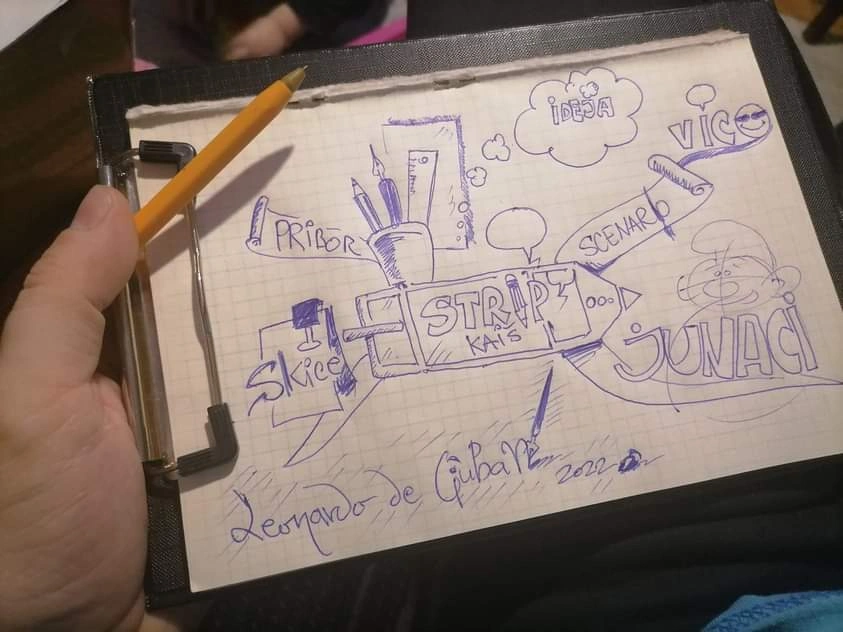 IDEJA
VIC
PRIBOR
SCENARIO
STRIP
KAIŠ
Skice
JUNACI
Leonardo de Ljuban
2022